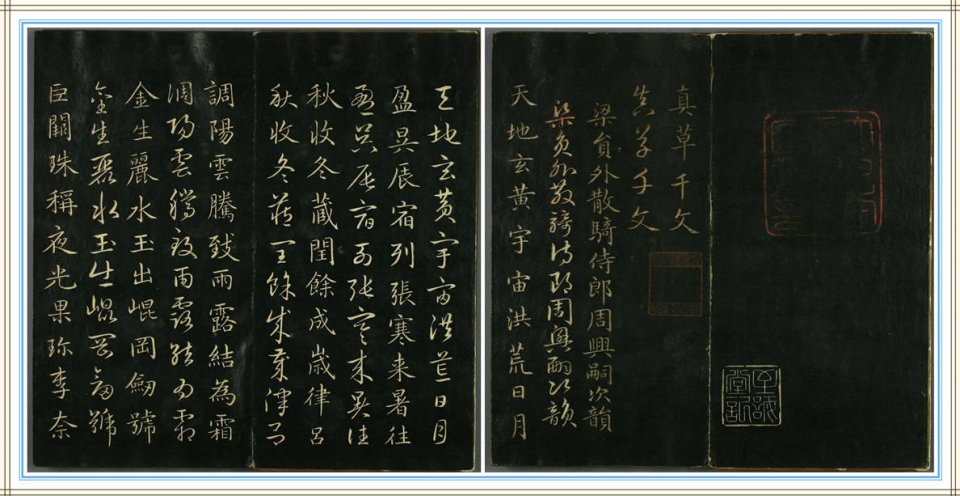 真草千文
真草千文
梁員外散騎侍郎周興嗣次韻
梁員外散騎侍郎周興嗣次韻
天地玄黃宇宙洪荒日月
天地玄黃宇宙洪荒日月
盈昃辰宿列張寒来暑往
盈昃辰宿列張寒来暑往
秋收冬藏閏餘成歲律呂
秋收冬藏閏餘成歲律呂
調陽雲騰致雨露結為霜
調陽雲騰致雨露結為霜
金生麗水玉出崐岡劒號
金生麗水玉出崐岡劒號
巨闕珠稱夜光果珍李柰